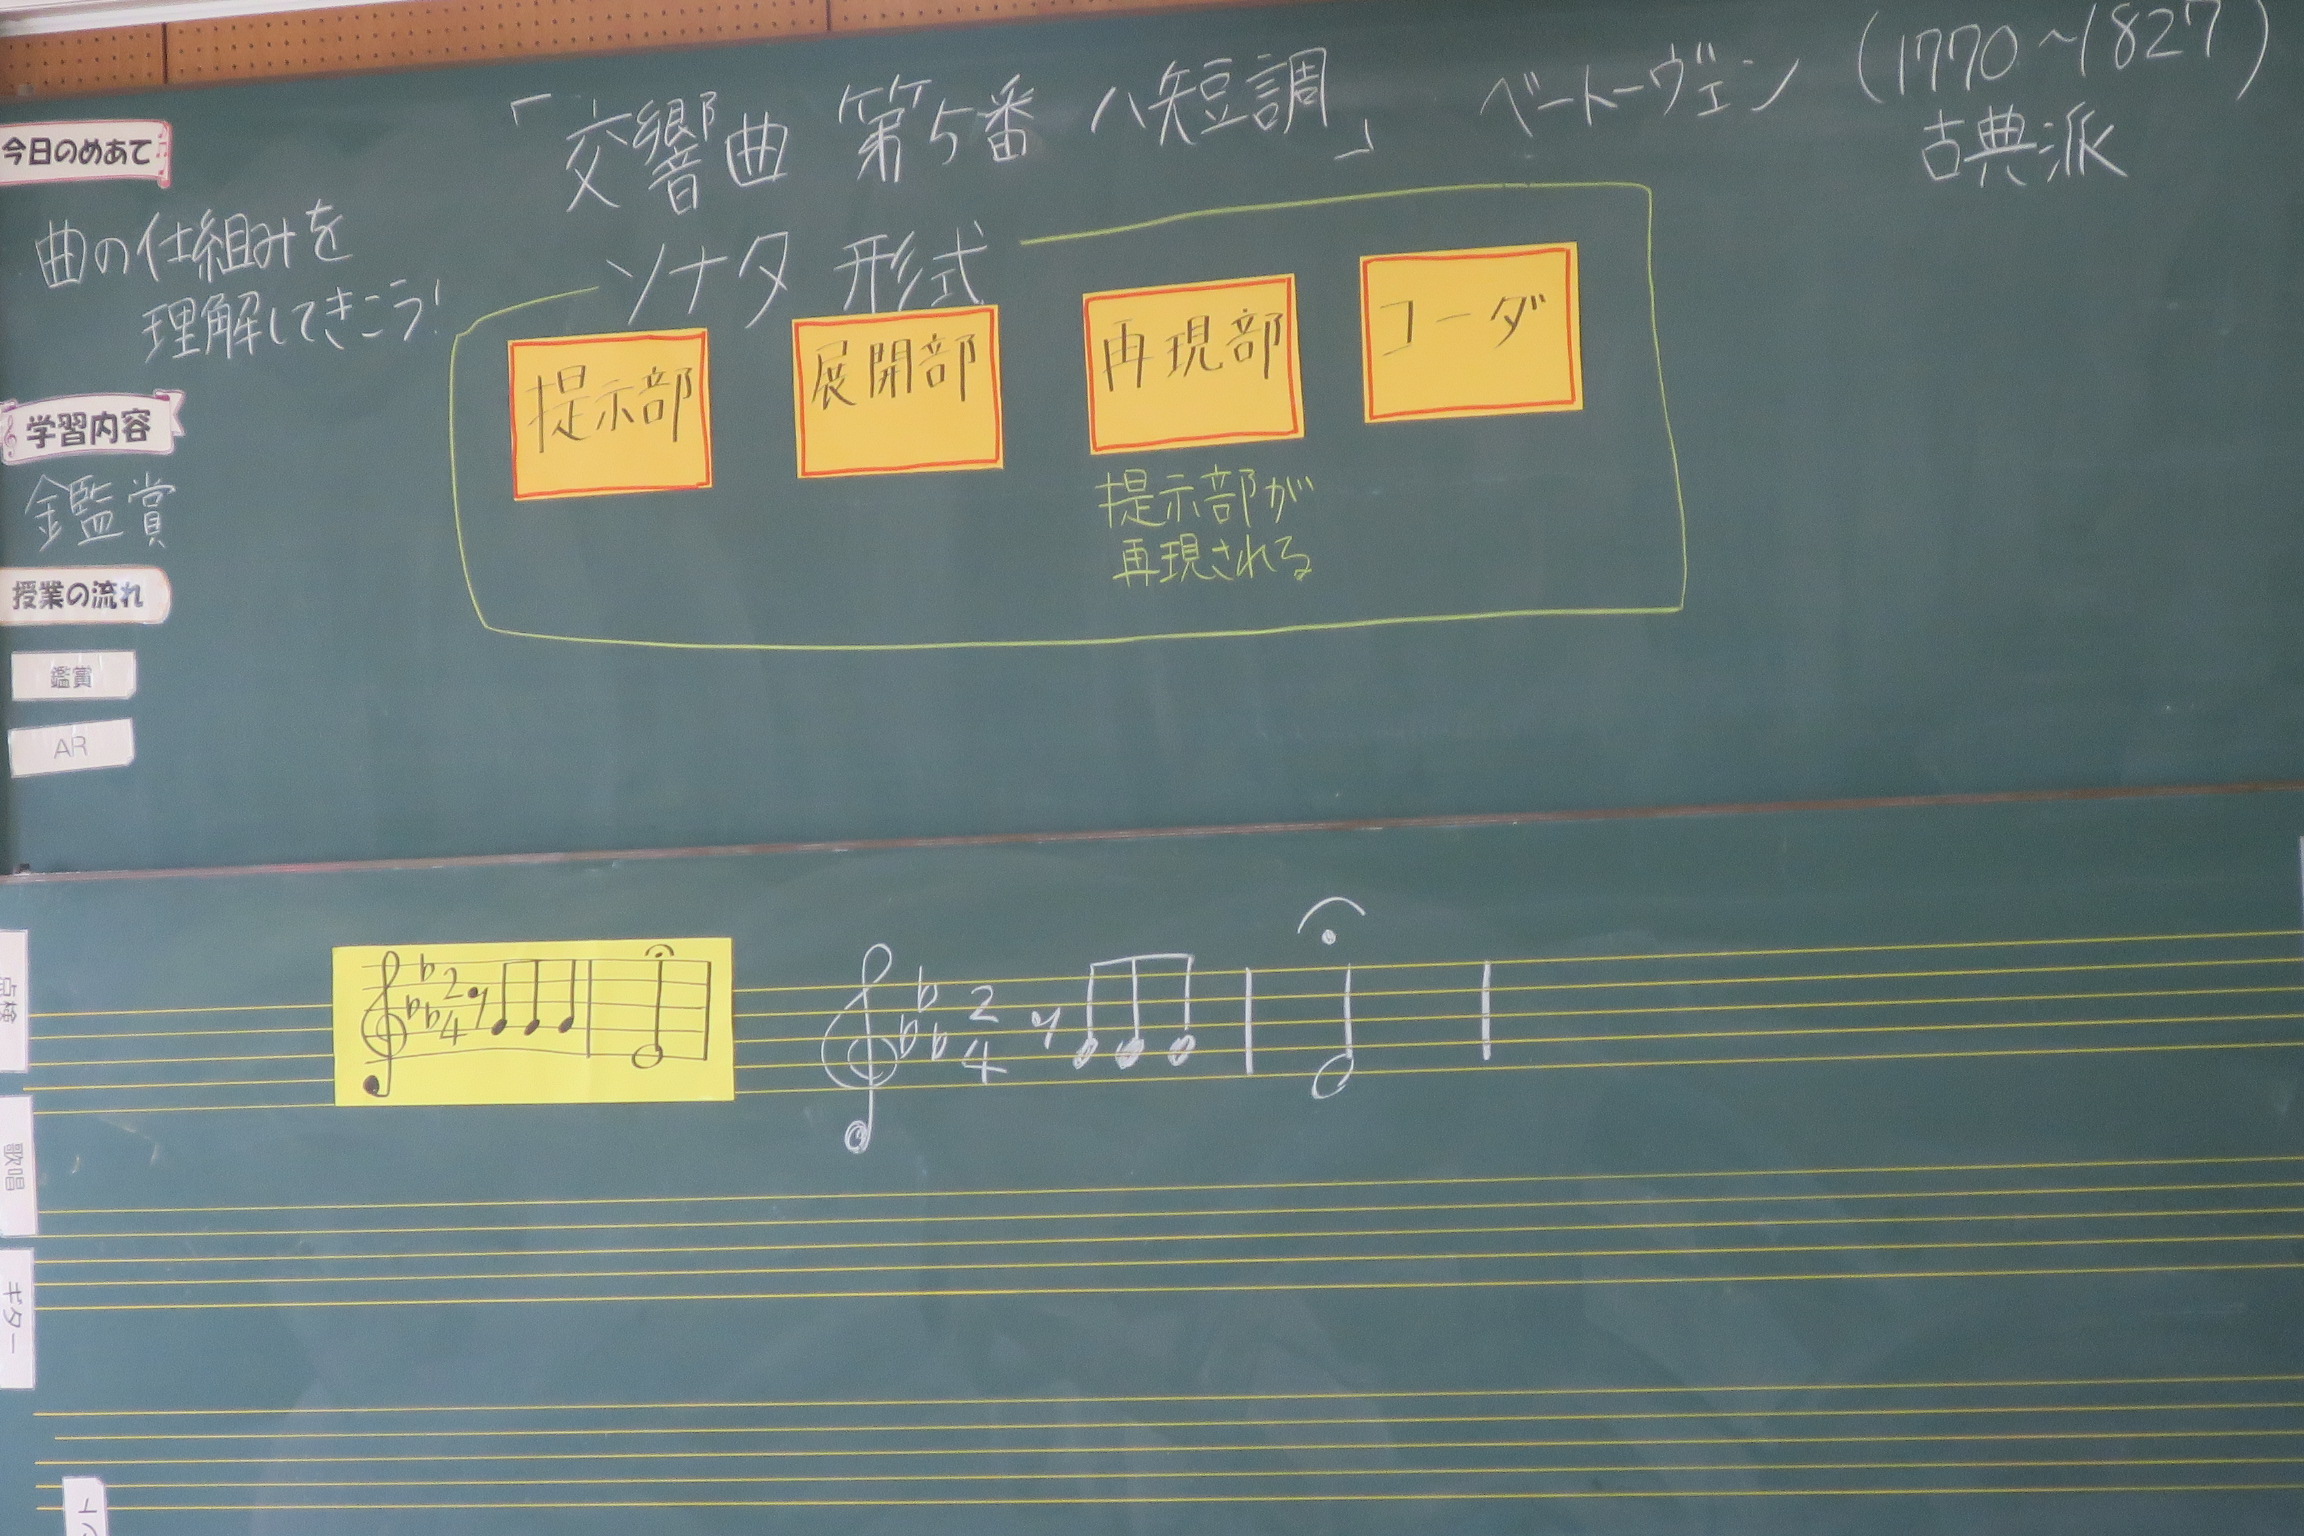 「交響曲 第5番 ハ短調」 ベートーヴェン (1770~1827)
古典派
今日のめあて
曲の仕組みを
理解してきこう!
学習内容
鑑賞
授業の流れ
鑑賞
AR
ソナタ 形式
提示部
展開部
再現部
コーダ
提示部が
再現される
2
4
2
4
歌唱
ギター